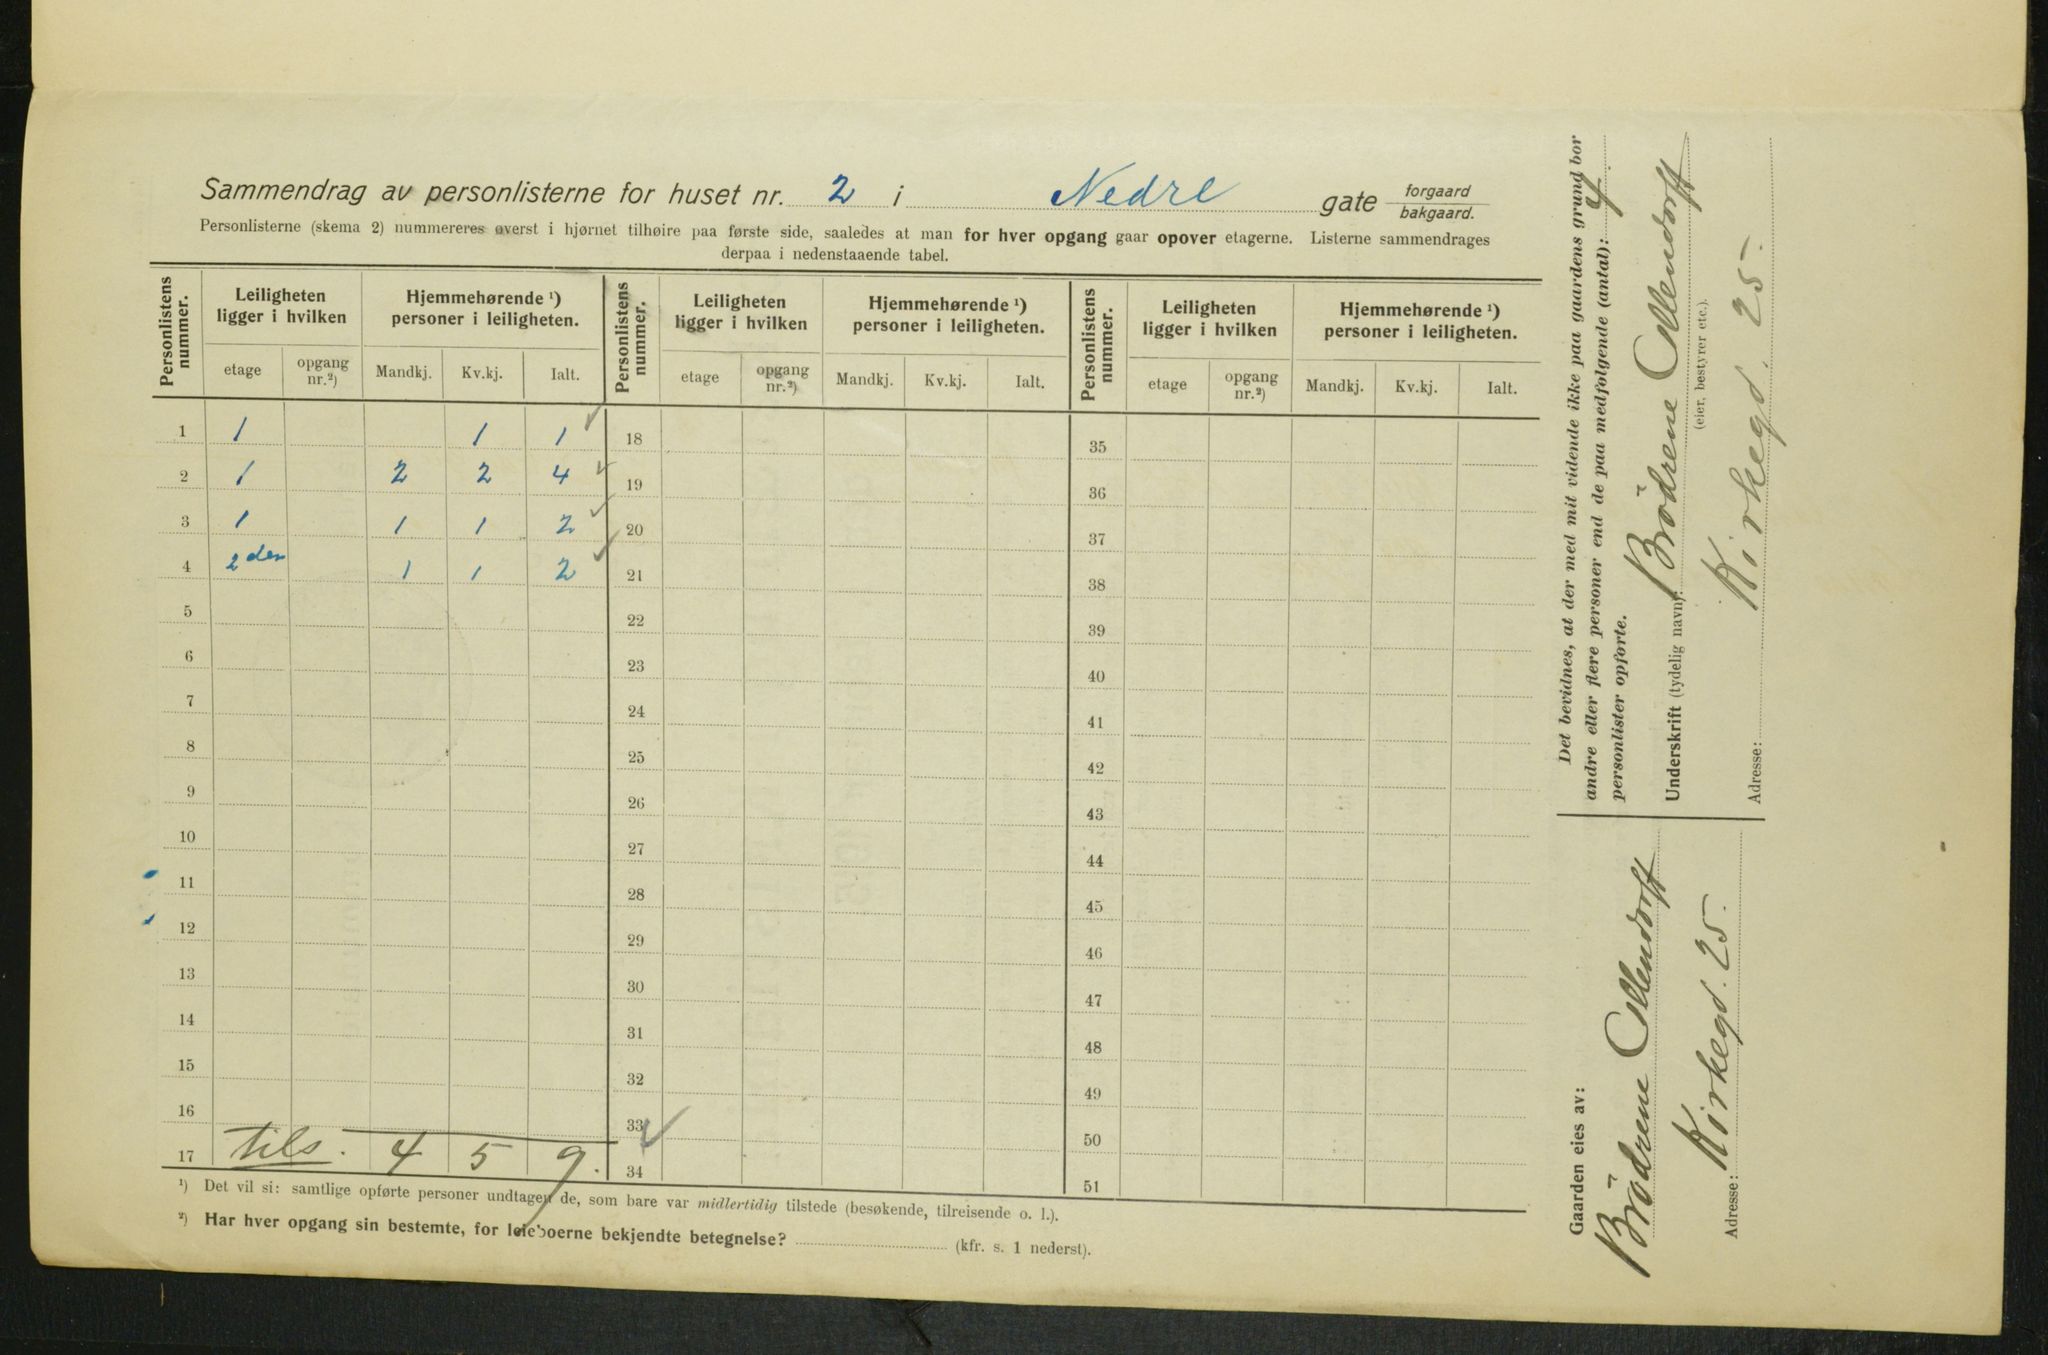 Sammendrag av personlisterne for huset nr. 2 i Nedre gate forgaard bakgaard.
Personlisterne (skema 2) nummereres øverst i hjørnet tilhøire paa første side, saaledes at man for hver opgang gaar opover etagerne. Listerne sammendrages
derpaa i nedenstaaende tabel.
Personlistens nummer. Leiligheten ligger i hvilken Hjemmehørende ¹) personer i leiligheten. Personlistens nummer. Leiligheten ligger i hvilken Hjemmehørende ¹) personer i leiligheten. Personlistens nummer. Leiligheten ligger i hvilken Hjemmehørende ¹) personer i leiligheten.
etage opgang nr.²) Mandkj. Kv.kj. Ialt. etage opgang nr.²) Mandkj. Kv.kj. Ialt. etage opgang nr.²) Mandkj. Kv.kj. Ialt.
1 1 1 1 18 35
2 1 2 2 4 19 36
3 1 1 1 2 20 37
4 2den 1 1 2 21 38
5 22 39
6 23 40
7 24 41
8 25 42
9 26 43
10 27 44
11 28 45
12 29 46
13 30 47
14 31 48
15 32 49
16 33 50
17 tils. 4 5 9. 34 51
¹) Det vil si: samtlige opførte personer undtagen de, som bare var midlertidig tilstede (besøkende, tilreisende o. l.).
²) Har hver opgang sin bestemte, for leieboerne bekjendte betegnelse? (kfr. s. 1 nederst).
Det bevidnes, at der med mit vidende ikke paa gaardens grund bor
andre eller flere personer end de paa medfølgende (antal): 4.
personlister opførte.
Underskrift (tydelig navn): Brödrene Allendorff
(eier, bestyrer etc.).
Adresse: Kirkegd. 25.
Gaarden eies av:
Brödrene Allendorff
Adresse: Kirkegd. 25.